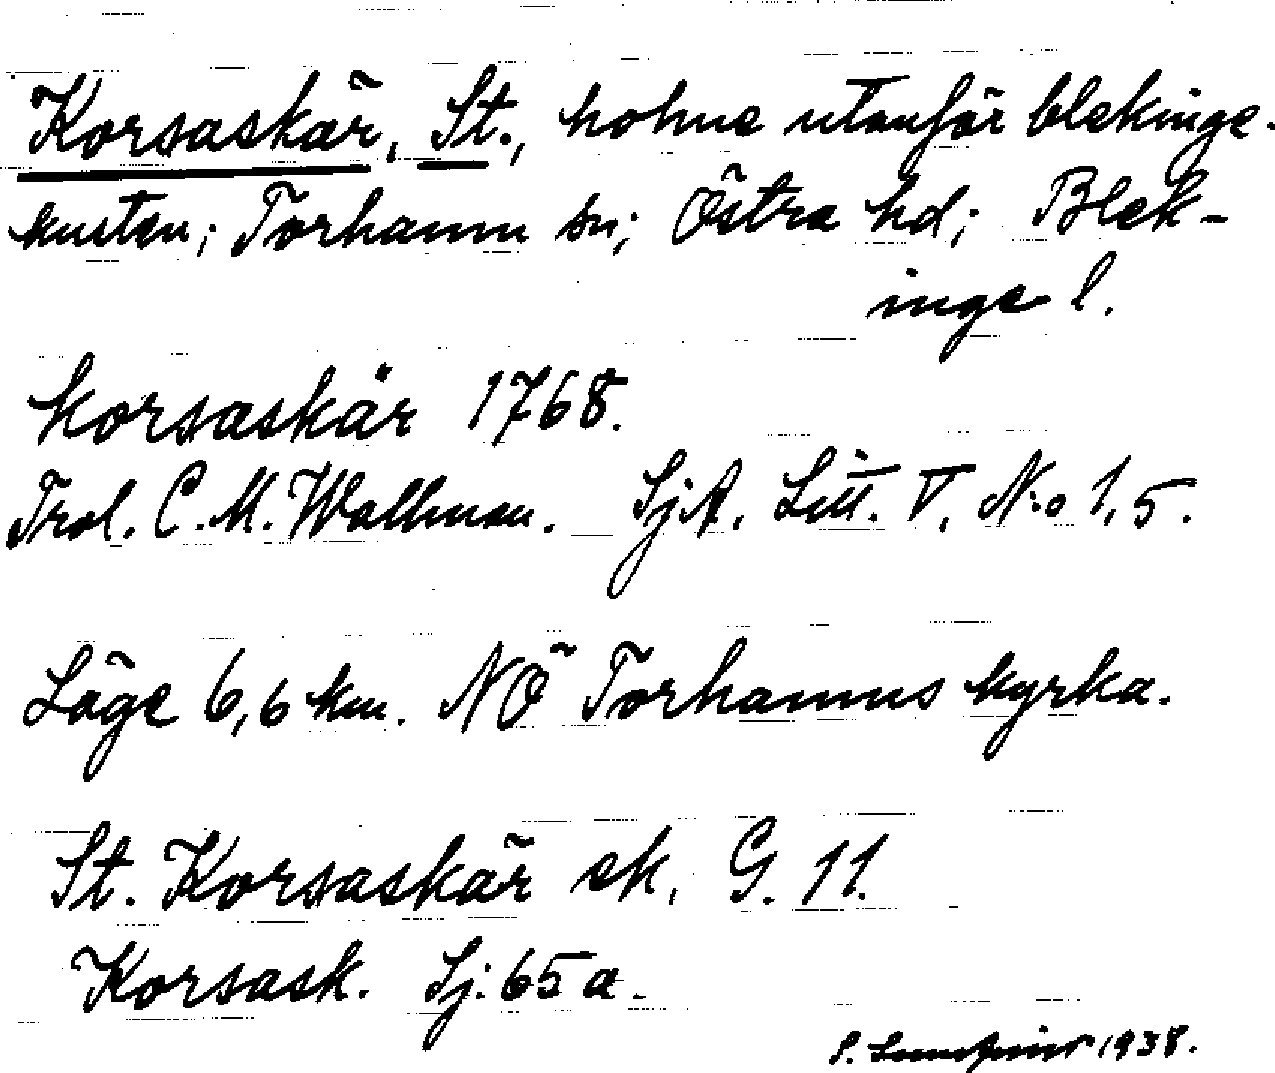 Korsaskär, St., holme utanför blekinge-
kusten; Torhamn sn; Östra hd; Blek-
inge l.
Korsaskär 1768.
Trol. C. M. Wallman. SjA. Litt. V, N:o 1,5.
Läge 6,6 km. NÖ Torhamns kyrka.
St. Korsaskär ek. G. 11.
Korsask. Sj: 65 a.
S. 1938.